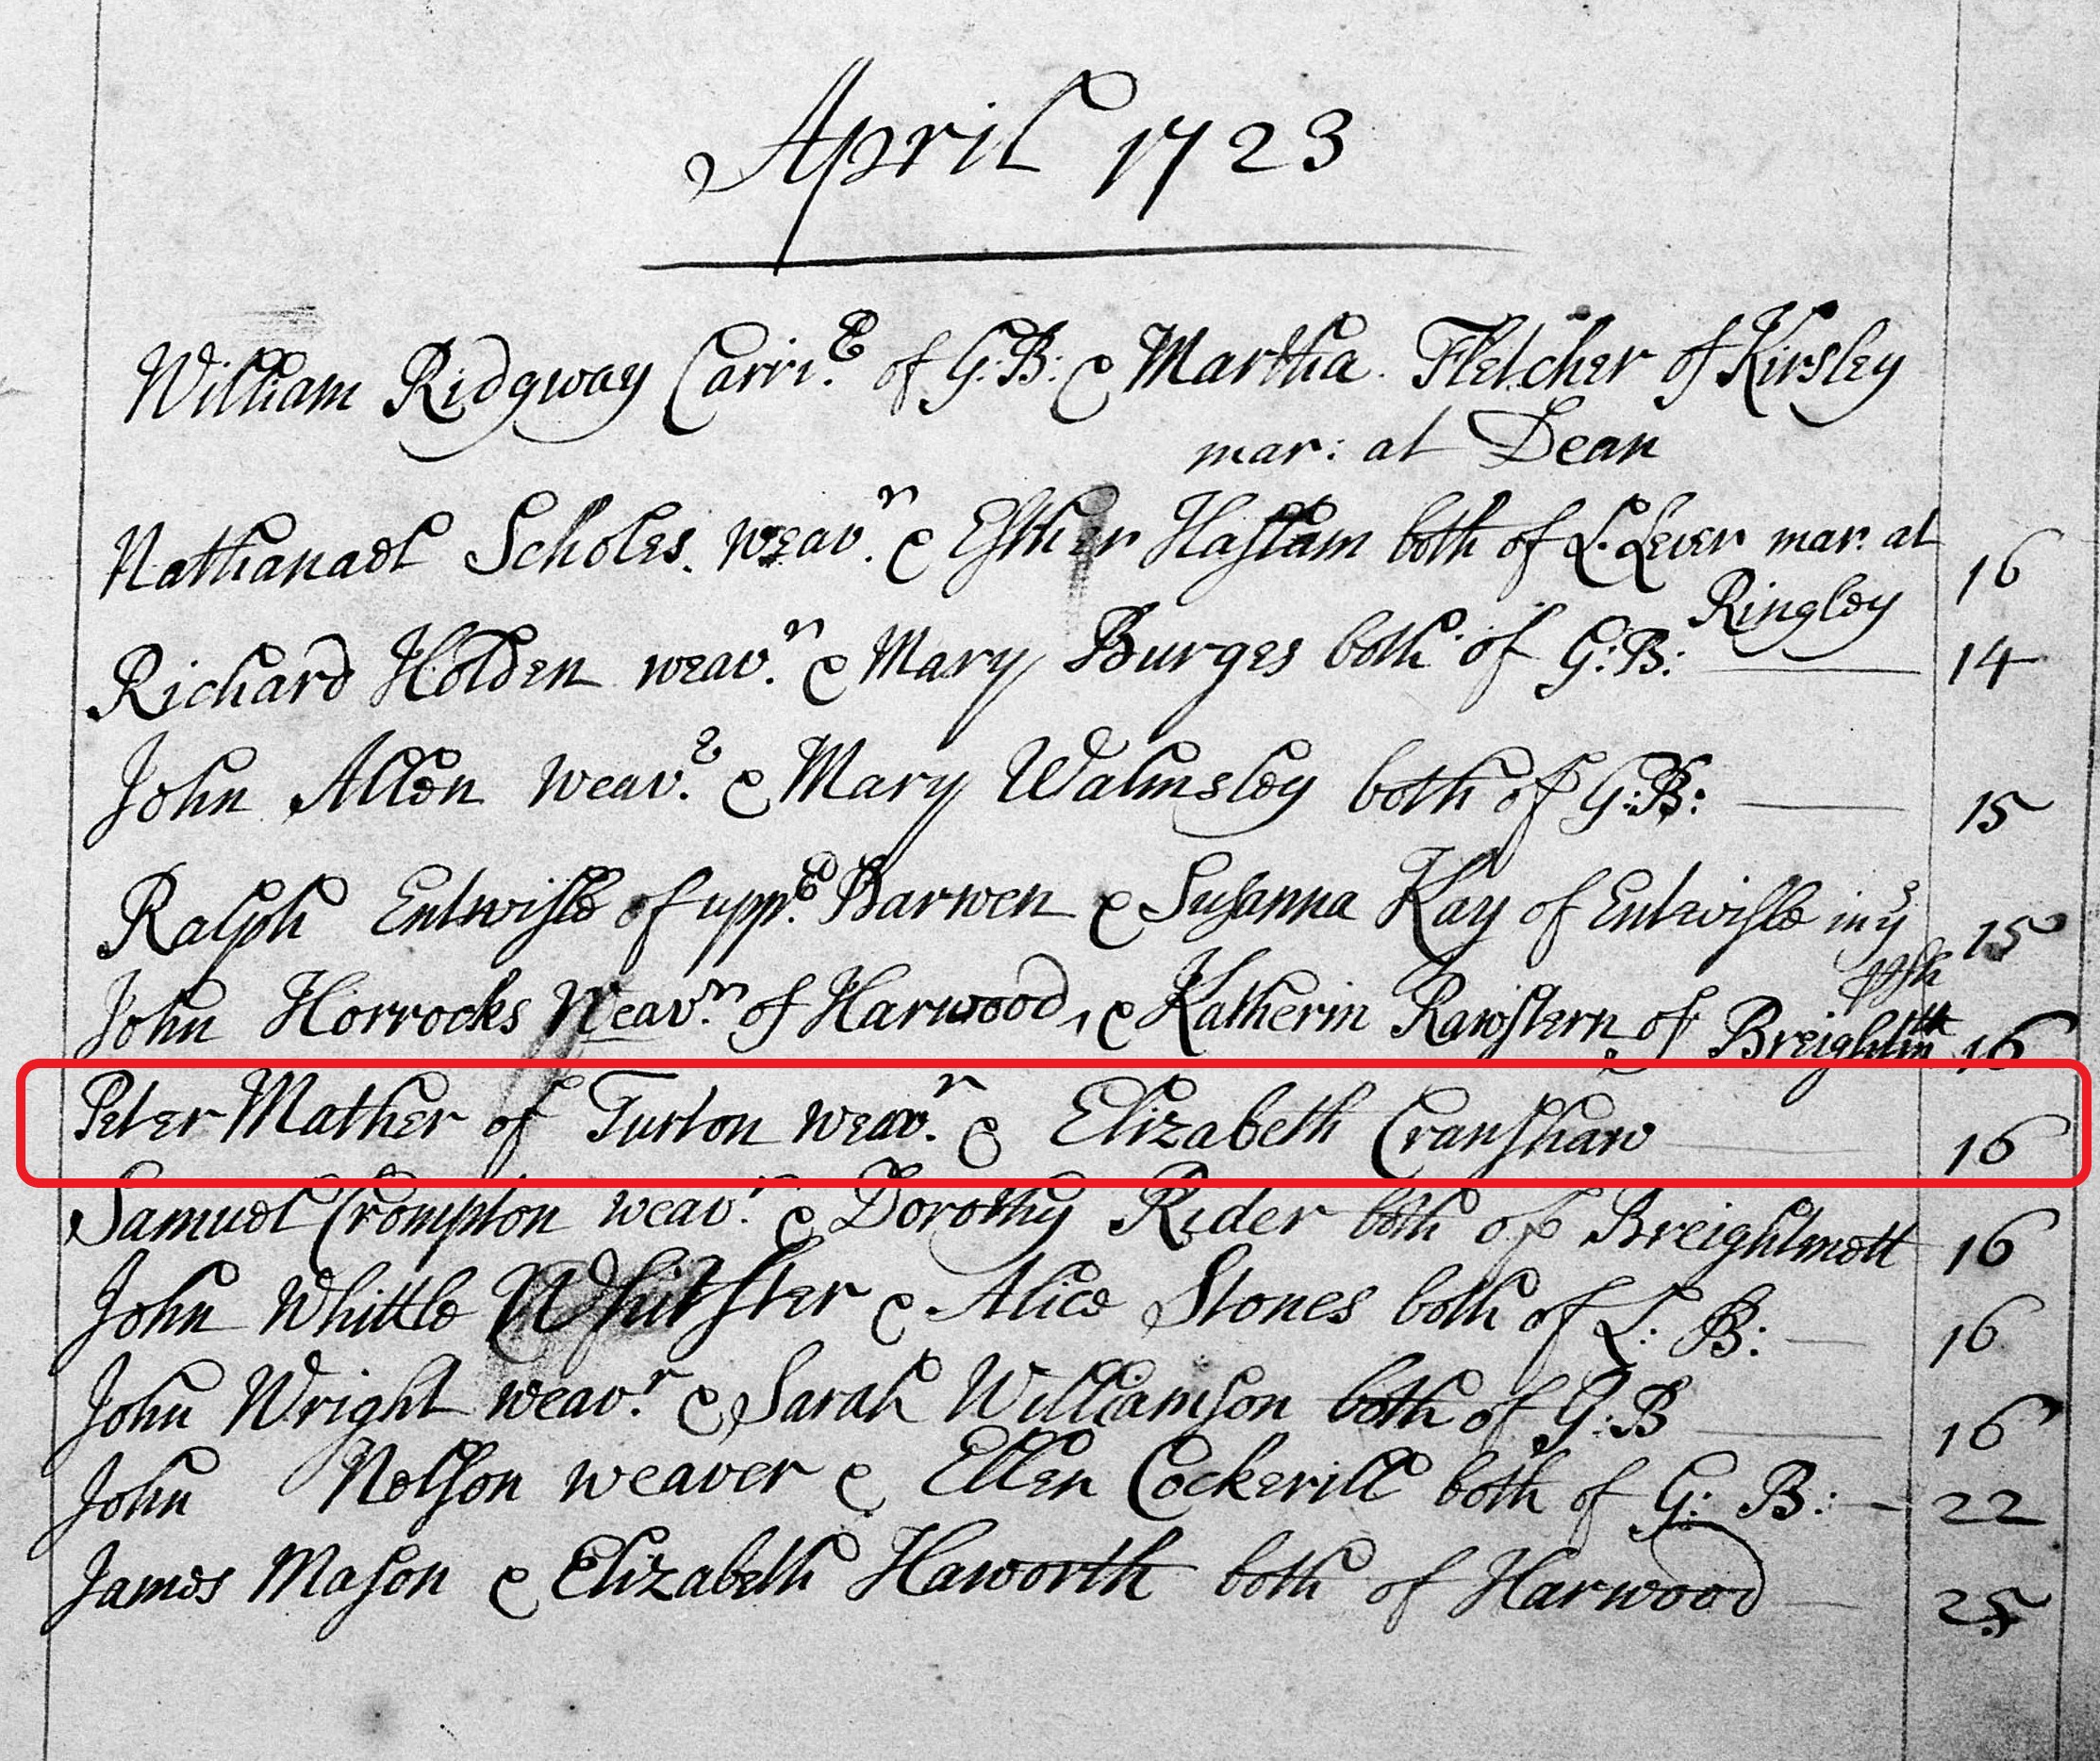 April 1723
William Ridgway Carri.r of G:B: & Martha Fletcher of Kirsley
mar: at Dean
Nathanael Scholes. weav.r & Esther Haslam both of L. Lever mar. at 16
Ringley
Richard Holden weav.r & Mary Burges both of G:B: 14
John Allen weav.r & Mary Walmsley both of G:B: 15
Ralph Entwisle of upp.r Darwen & Susanna Kay of Entwisle in ye 15
psh
John Horrocks Weav.r of Harwood, & Katherin Rawstern of Breightmtt 16
Peter Mather of Turton weav.r & Elizabeth Cranshaw 16
Samuel Crompton weav.r & Dorothy Rider both of Breightmett 16
John Whittle Whitster & Alice Stones both of L: B: 16
John Wright weav.r & Sarah Williamson both of G:B 16
John Nelson weaver & Ellen Cockerill both of G: B: 22
James Mason & Elizabeth Haworth both of Harwood 25